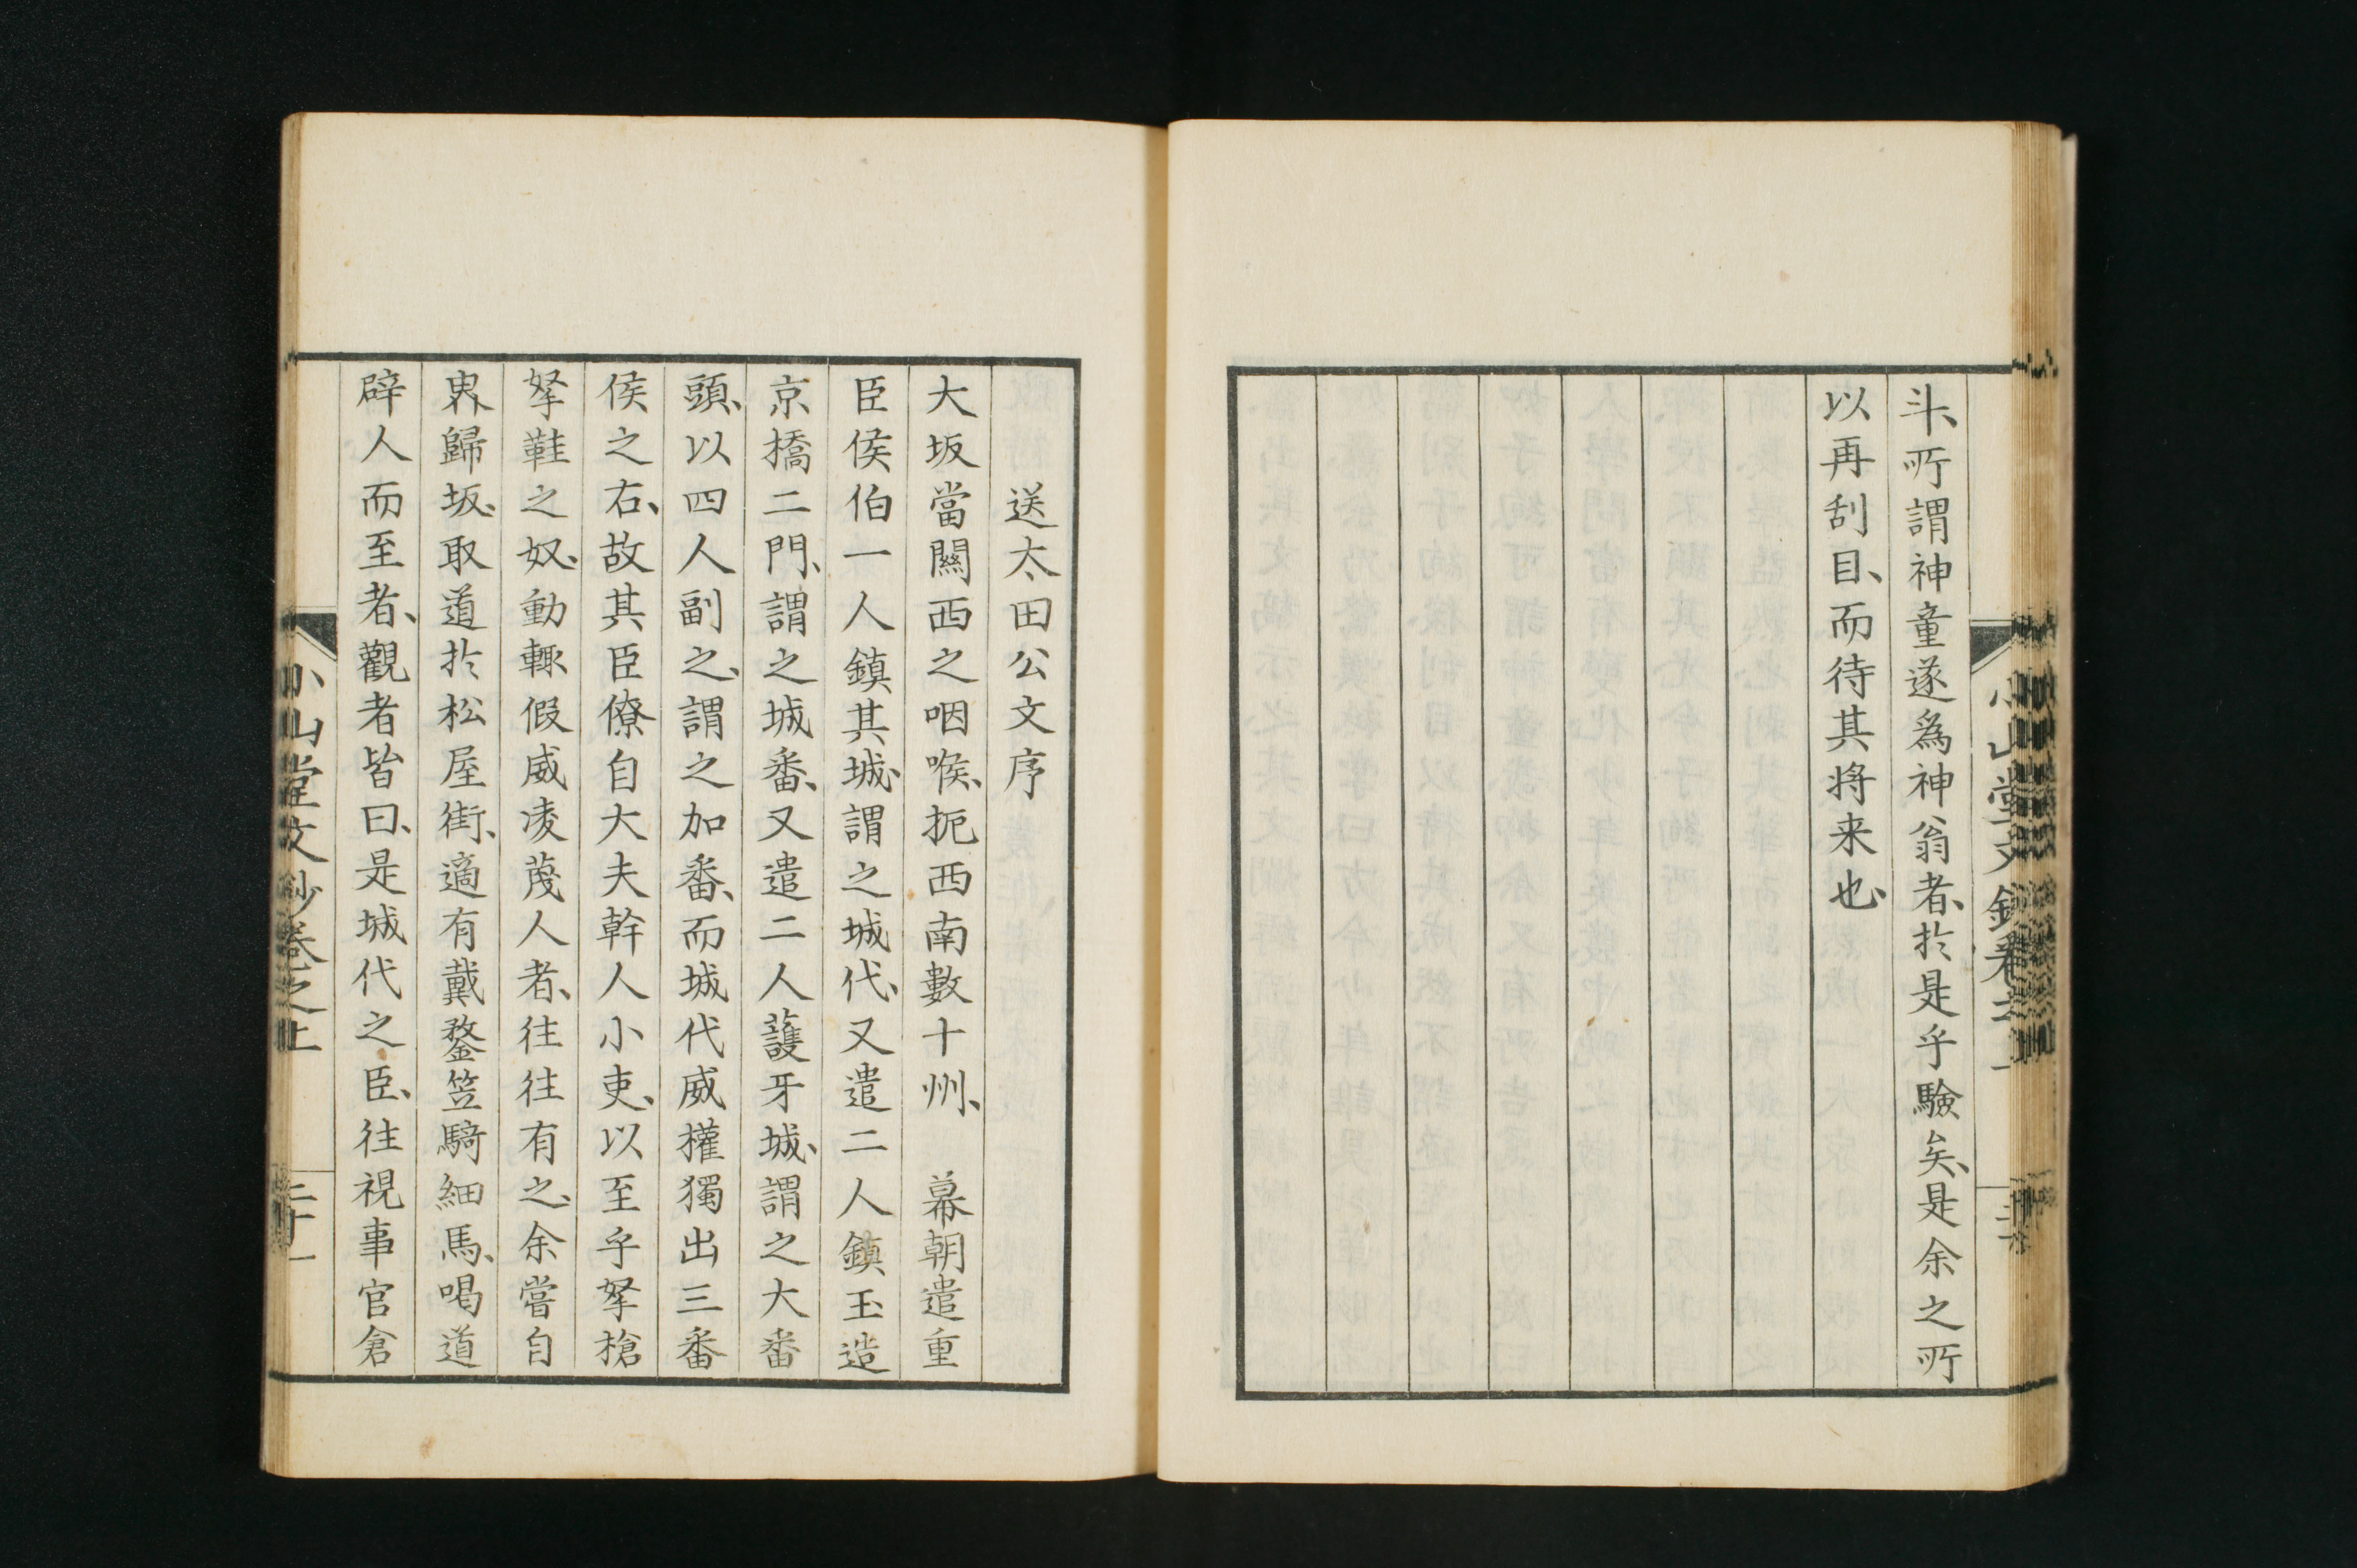 斗、所謂神童遂爲神翁者、於是乎驗矣、是余之所
以再刮目、而待其将来也、
送太田公文序
大坂當關西之咽喉、扼西南數十州、　幕朝遣重
臣侯伯一人鎮其城、謂之城代、又遣二人鎮玉造
京橋二門、謂之城番、又遣二人護牙城、謂之大番
頭、以四人副之、謂之加番、而城代威權獨出三番
侯之右、故其臣僚自大夫幹人小吏、以至乎拏槍
拏鞋之奴、動輙假威凌蔑人者、往往有之、余嘗自
外歸坂、取道於松屋街、適有戴鍪笠騎細馬、喝道
辟人而至者、觀者皆曰、是城代之臣、往視事官倉
小山堂文鈔卷之上
二十一